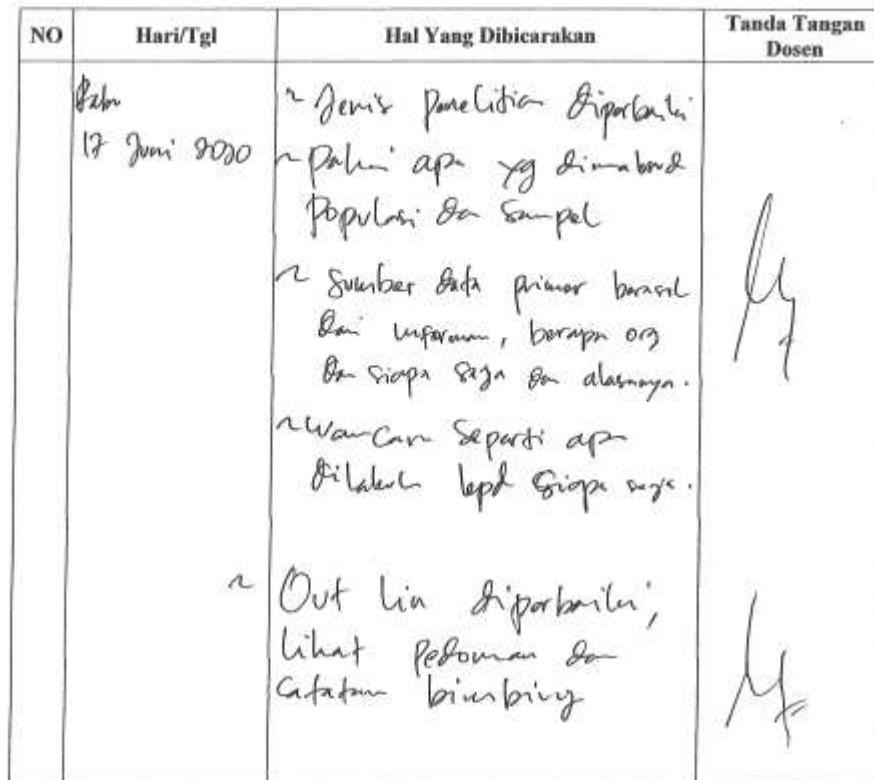 NO Hari/Tgl Hal Yang Dibicarakan Tanda Tangan Dosen
Rabu
17 Juni 2020
~ Jenis penelitian diperbaiki
~ apa yg dimaksud
Populasi dan Sampel
~ Sumber data primer berasal
dari informan, berapa org
dan siapa saja dan alasannya.
~ Wawancara seperti apa
dilakukan kpd siapa saja.
~ Out Lin diperbaiki,
lihat Pedoman dan
catatan bimbing